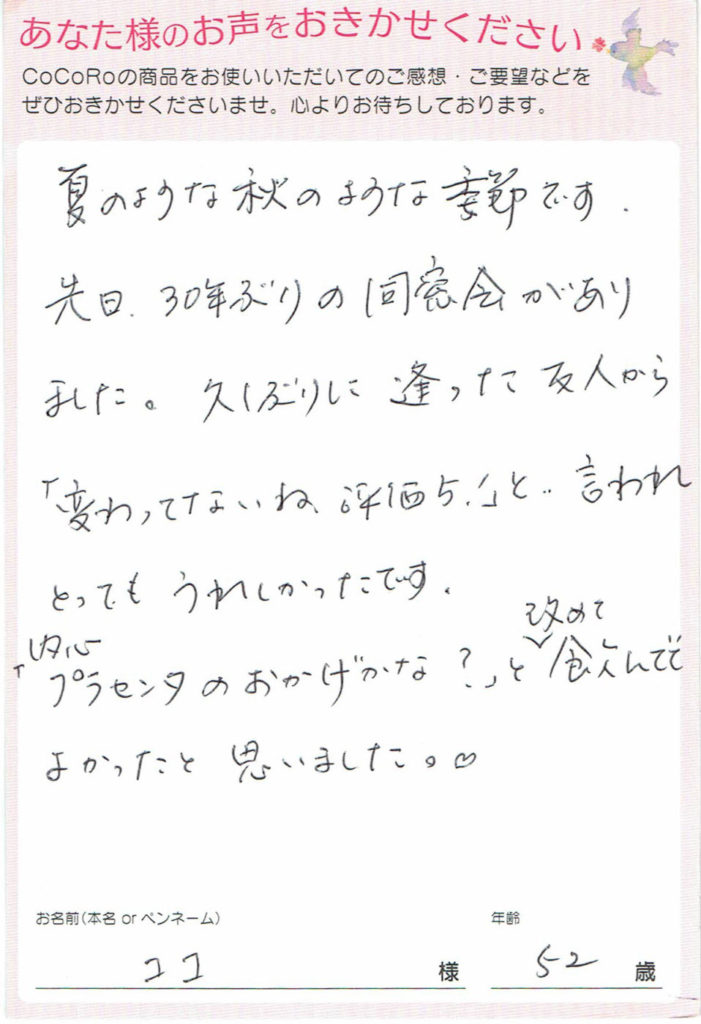 あなた様のお声をおきかせください
CoCoRoの商品をお使いいただいてのご感想・ご要望などを
ぜひおきかせくださいませ。心よりお待ちしております。
夏のような秋のような季節です.
先日、30年ぶりの同窓会があり
ました。久しぶりに逢った友人から
「変わってないね、評価5!」と‥言われ
とってもうれしかったです.
内心
改めて
「プラセンタのおかげかな?」と飲んでて
よかったと思いました。♡
お名前(本名 or ペンネーム)
年齢
ココ 様
52 歳